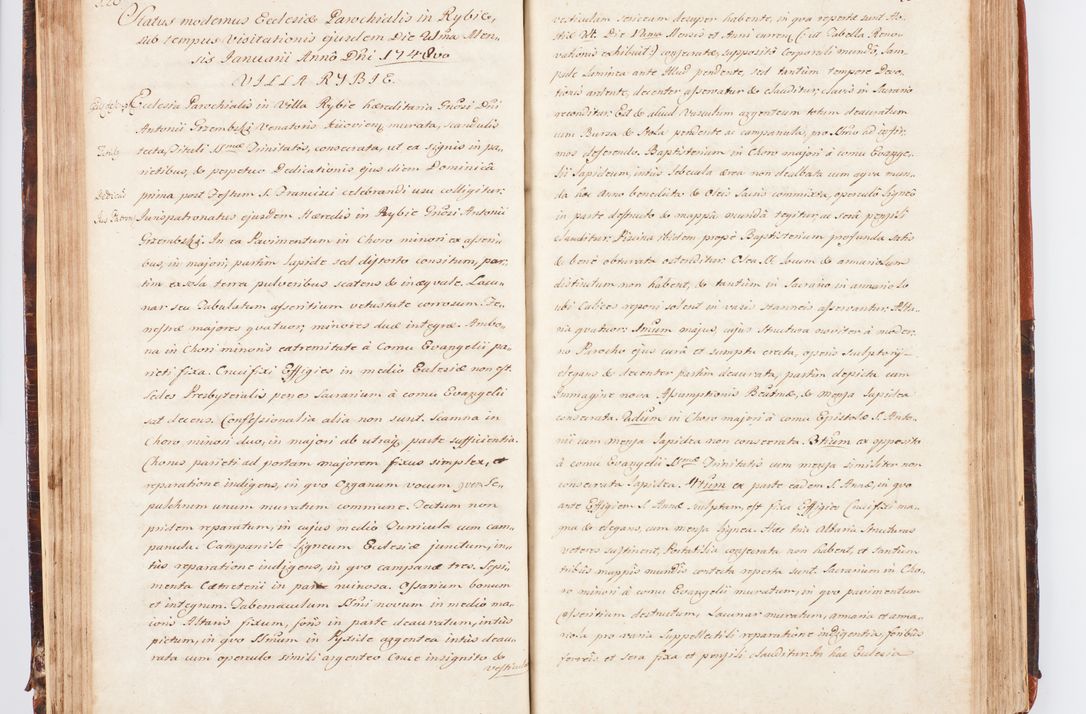 Status modernus Ecclesiæ Parochialis in Rybie,
sub tempus Visitationis ejusdem Die Ulma Men-
sis Januarii Annô Dñi 1748vo
VILLA RYBIE.
Ecclesia Parochialis in Villa Rybie hæreditaria Gnosi Dñi
Antonii Grzembski Venatoris murata, scandulis
tecta, Tituli SSmæ Trinitatis, consecrata, ut ex signis in pa-
Tituly
rietibus, & perpetuo Dedicationis ejus diem Dominicâ
prima post Festum S. Francisci celebrandi usu colligitur.
Jus Patron
Jurispatronatus ejusdem Hæredis in Rybie Gnosi Antonii
Grzembski. In ea Pavimentum in Choro minori ex asseri-
bus, in majori, partim lapide sed distorto consitum, par-
tim ex sola terra pulveribus scatens & inæquale. Lacu-
nar seu Tabulatum asseritium vetustate corrosum. Fe-
nestræ majores quatuor, minores duæ integræ. Ambo-
na in Chori minoris extremitate à Cornu Evangelii pa-
rieti fixa. Crucifixi Effigies in medio Ecclesiæ non est.
Sedes Presbyteralis penes Sacrarium à cornu Evangelii
sat decens. Confessionalia alia non sunt. Scamna in
Choro minori duo, in majori ab utraq; parte sufficientia.
Chorus parieti ad portam majorem fixus simplex, et
reparatione indigens, in quo Organum vocum Se-
pulchrum unum muratum commune. Tectum non
pridem reparatum, in cujus medio Turricula cum cam-
panula. Campanile ligneum Ecclesiæ junctum, in-
tus reparatione indigens, in quo campanæ tres. Sepi-
menta Cæmeterii in parte ruinosa. Ossarium bonum
et integrum. Tabernaculum SSmi novum in medio ma-
ioris Altaris fixum, foris in parte deauratum, intus
pictum, in quo SSmum in Pyxide argentea intùs deau-
rata cum operculo simili argenteo Cruce insignito &
vesticula
vesticulam sericeam desuper habente, in qua reperta sunt Ho-
stiæ Die Mensis et Anni curren: (ut Tabella Reno-
vationis exhibuit) consecratæ, supposito Corporali mundô, Lam-
pade laminea ante illud pendente, sed tantùm tempore Devo-
tionis ardente, decenter asservatur & clauditur, clavis in Sacrario
reconditur. Est & aliud Vasculum argenteum totum deauratum
cum Bursa & Stola pendente ac campanula, pro SSmo ad infir-
mos deferendo. Baptisterium in Choro majori à cornu Evange-
lii lapideum, intùs lebecula ærea non dealbata cum aqua mun-
da hoc anno benedicta & Oleis Sacris commixta, operculo ligneo
in parte destructo & mappâ mundâ tegitur, ac serâ pensili
clauditur. Piscina ibidem propè Baptisterium profunda satis
& benè obturata ostenditur. Olea SS. locum & armariolum
distinctum non habent, & tantùm in Sacrario in armario
ubi Calices reponi solent in vasis stanneis asservantur. Alta-
ria quatuor: Imum majus, cujus Structura noviter à moder-
no Parocho ejus curâ et sumptu erecta, operis sculptorij
elegans & decenter partim deaurata, partim depicta cum
Immagine nova Assumptionis Beatmæ, & mensa lapidea
consecrata. 2dum in Choro majori à cornu Epistolæ S. Anto-
nii cum mensa lapidea non consecrata. 3tium ex opposito
à cornu Evangelii SSmæ Trinitatis cum mensa similiter non
consecrata lapidea. 4tum ex parte eadem S. Annæ, in quo
ante Effigiem S. Annæ sculptam, est fixa Effigies Crucifixi ma-
gna & elegans, cum mensa lignea. Hæc tria Altaria Structuras
veteres sustinent, Portatilia consecrata non habent, et tantùm
tribus mappis mundis contecta reperta sunt. Sacrarium in Cho-
ro minori à cornu Evangelii muratum, in quo pavimentum
asseritium destructum, Lacunar muratum, armaria et arma-
riola pro varia Suppellectili reparatione indigentia, foribus
ferreis et sera fixa et pensili clauditur. In hac Ecclesia